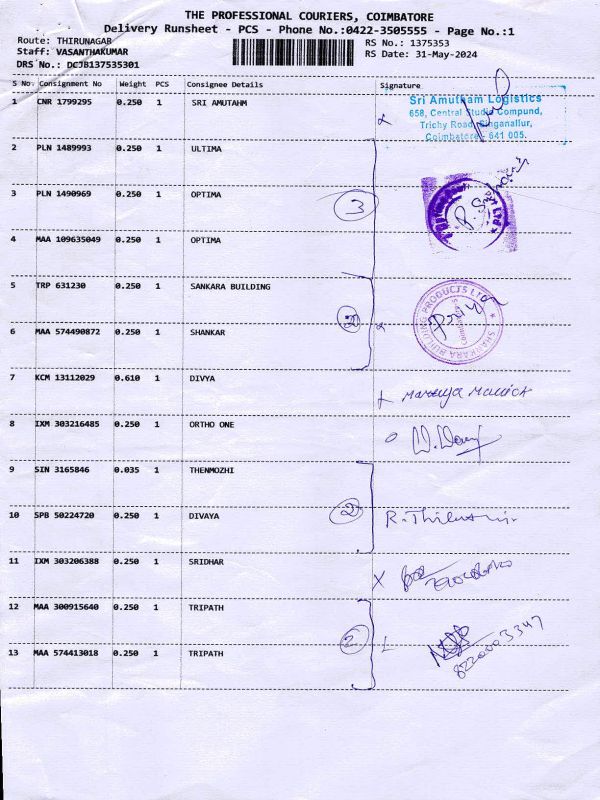 THE PROFESSIONAL COURIERS, COIMBATORE
Delivery Runsheet - PCS - Phone No.:0422-3505555 - Page No.:1
Route: THIRUNAGAR
RS No.: 1375353
Staff: VASANTHAKUMAR
RS Date: 31-May-2024
DRS No.: DCJB137535301
S No. Consignment No Weight PCS Consignee Details Signature
1 CNR 1799295 0.250 1 SRI AMUTAHM
Sri Amutham Logistics
658, Central Studio Compund,
Trichy Road, Singanallur,
Coimbatore - 641 005.
2 PLN 1489993 0.250 1 ULTIMA
3 PLN 1490969 0.250 1 OPTIMA
3
4 MAA 109635049 0.250 1 OPTIMA
5 TRP 631230 0.250 1 SANKARA BUILDING
SHANKARA BUILDING PRODUCTS LTD
Priya
2
6 MAA 574490872 0.250 1 SHANKAR
7 KCM 13112029 0.610 1 DIVYA
8 IXM 303216485 0.250 1 ORTHO ONE
9 SIN 3165846 0.035 1 THENMOZHI
2
10 SPB 50224720 0.250 1 DIVAYA
11 IXM 303206388 0.250 1 SRIDHAR
12 MAA 300915640 0.250 1 TRIPATH
2
8220003347
13 MAA 574413018 0.250 1 TRIPATH